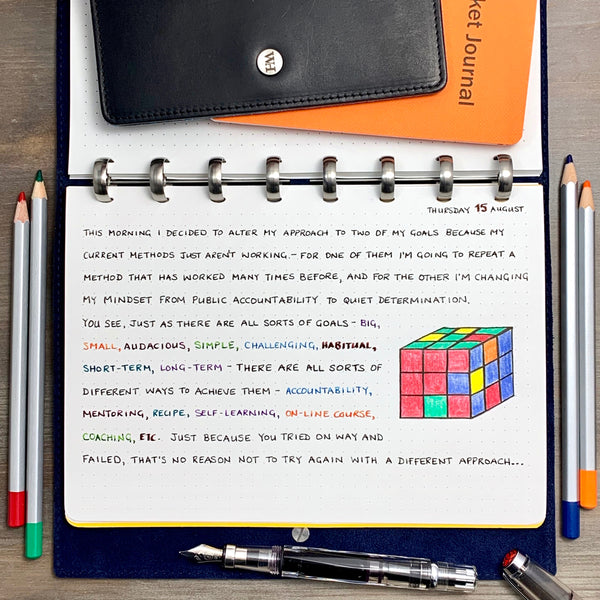 WH
ket Journal
THURSDAY 15 AUGUST
THIS MORNING I DECIDED TO ALTER MY APPROACH TO TWO OF MY GOALS BECAUSE MY
CURRENT METHODS JUST AREN'T WORKING. – FOR ONE OF THEM I'M GOING TO REPEAT A
METHOD THAT HAS WORKED MANY TIMES BEFORE, AND FOR THE OTHER I'M CHANGING
MY MINDSET FROM PUBLIC ACCOUNTABILITY TO QUIET DETERMINATION.
YOU SEE, JUST AS THERE ARE ALL SORTS OF GOALS – BIG,
SMALL, AUDACIOUS, SIMPLE, CHALLENGING, HABITUAL,
SHORT-TERM, LONG-TERM – THERE ARE ALL SORTS OF
DIFFERENT WAYS TO ACHIEVE THEM – ACCOUNTABILITY,
MENTORING, RECIPE, SELF-LEARNING, ON-LINE COURSE,
COACHING, ETC. JUST BECAUSE YOU TRIED ON WAY AND
FAILED, THAT'S NO REASON NOT TO TRY AGAIN WITH A DIFFERENT APPROACH...